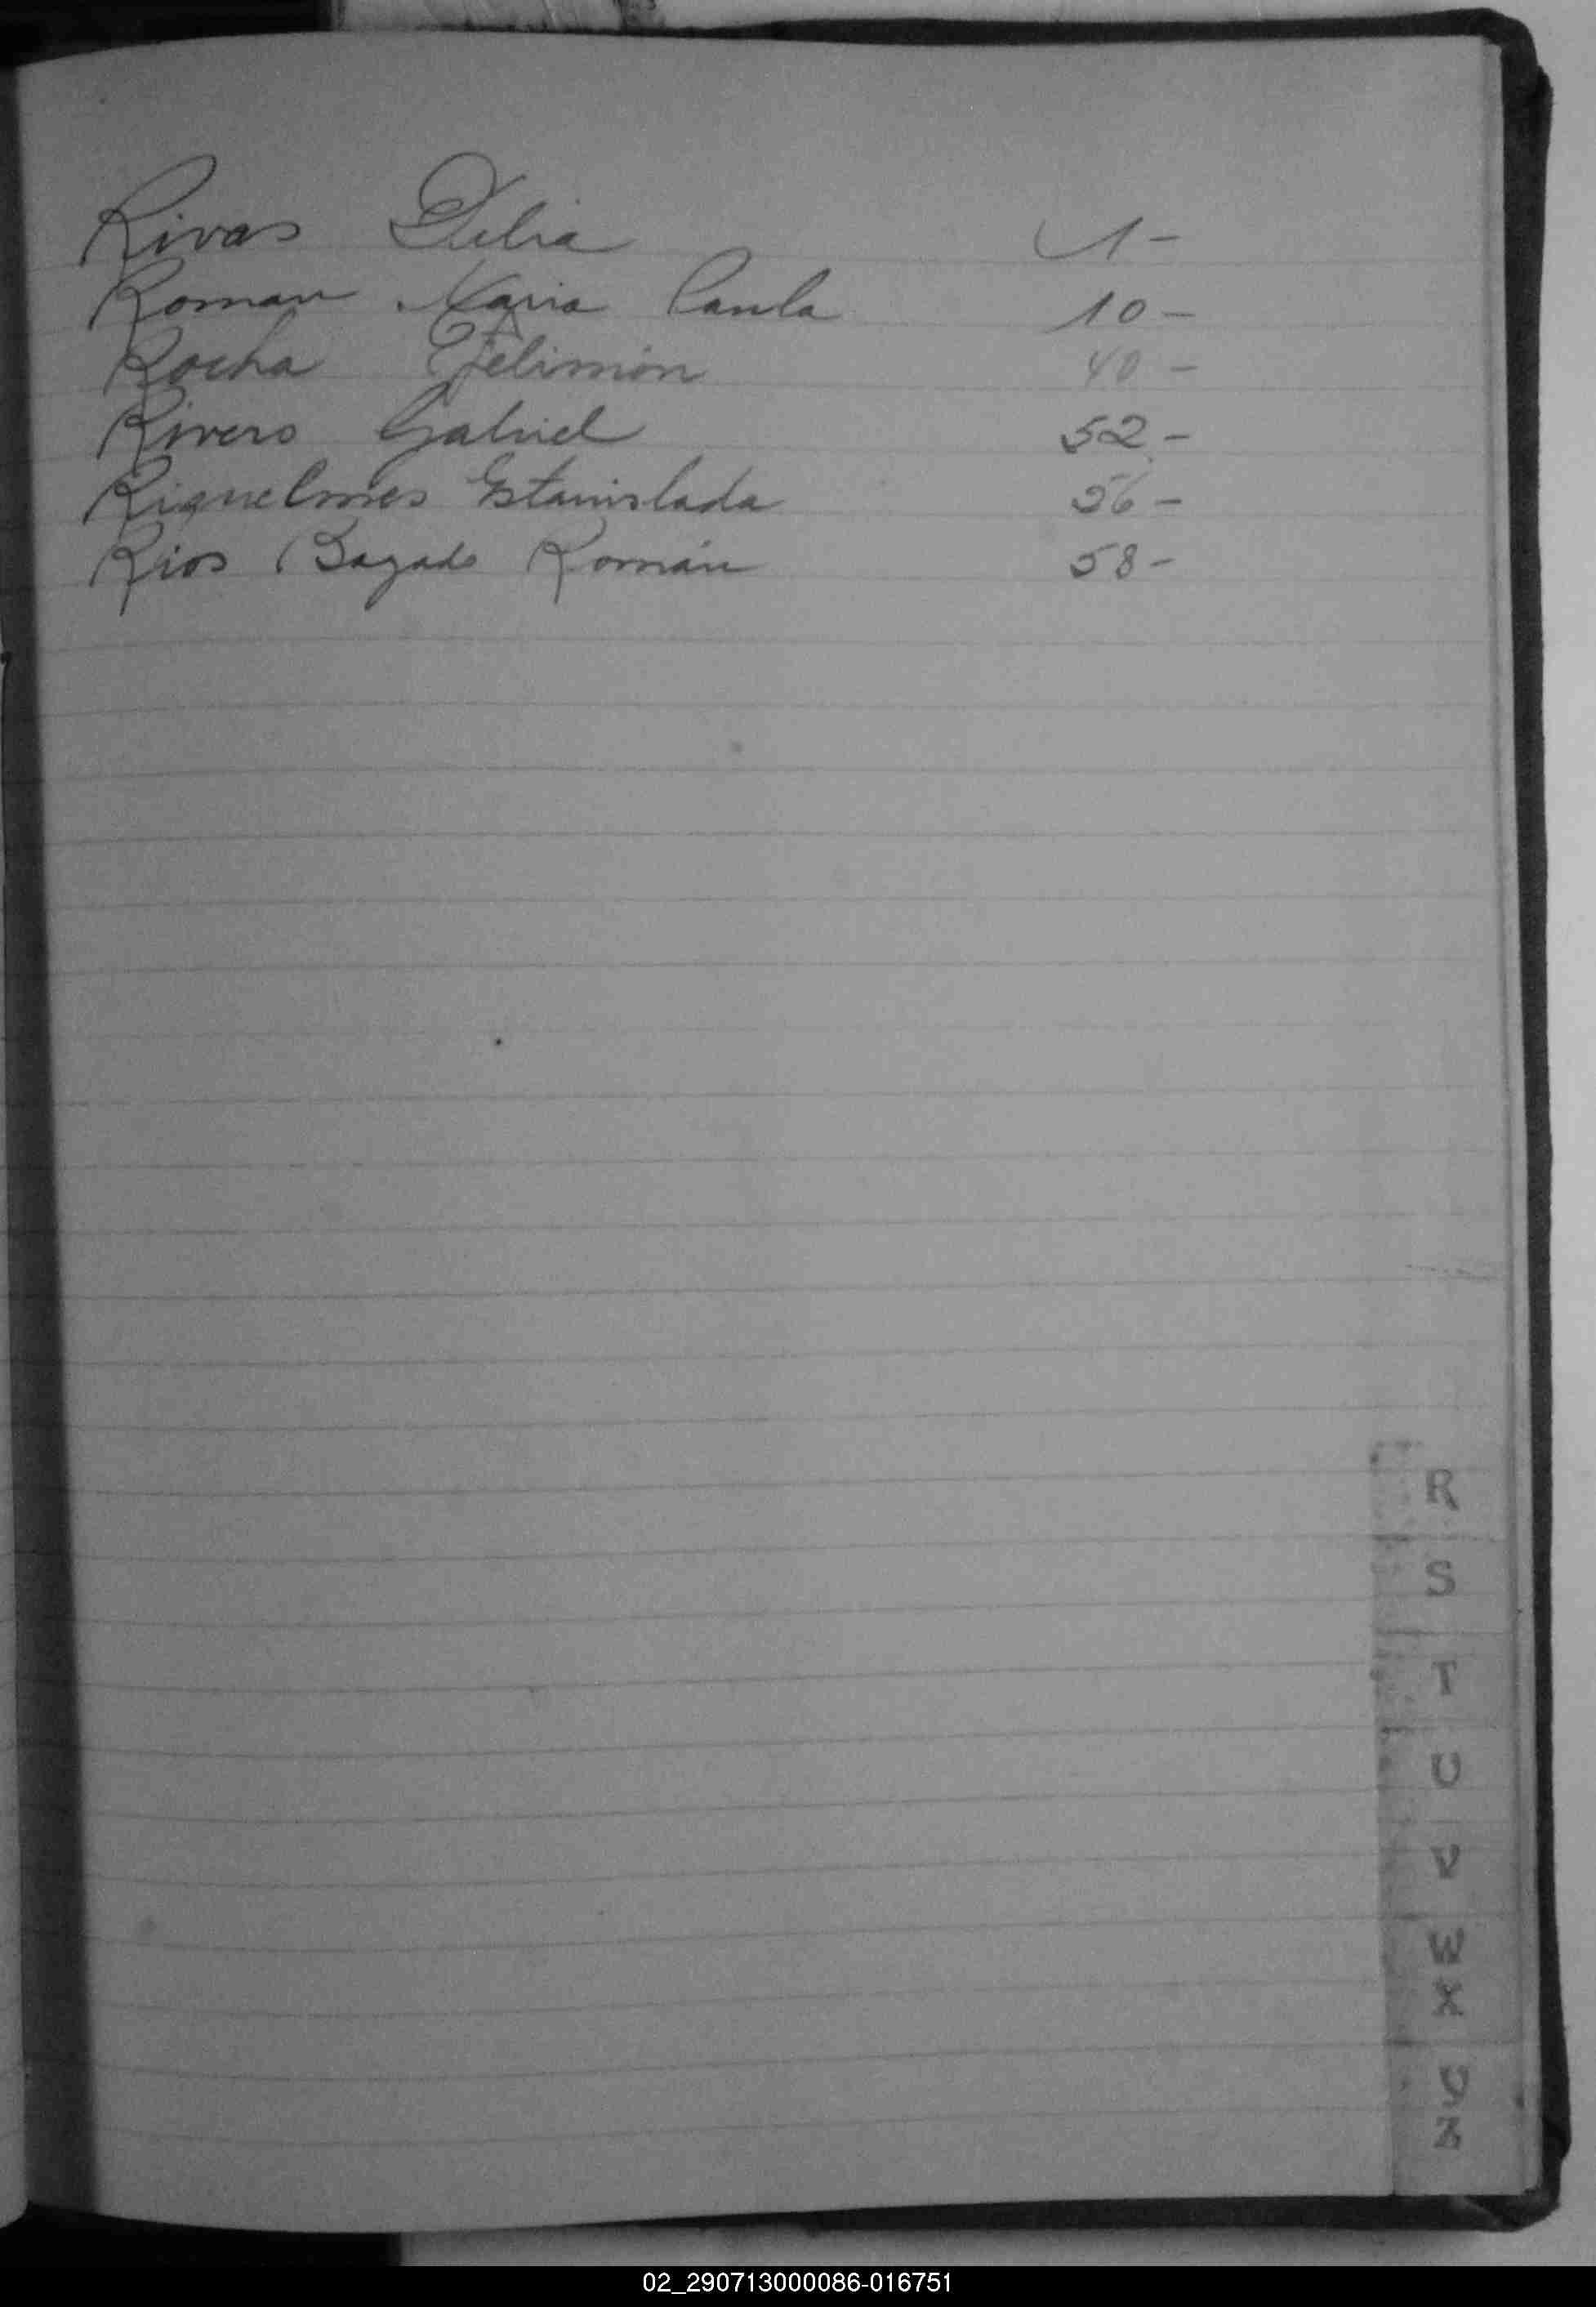 Rivas Delia 1-
Roman Maria Paula 10-
Rocha Felimón 40-
Rivero Gabriel 52-
Riquelmes Estanislada 56-
Rios Bazado Román 58-
R
S
T
U
V
W
X
Y
Z
02_290713000086-016751